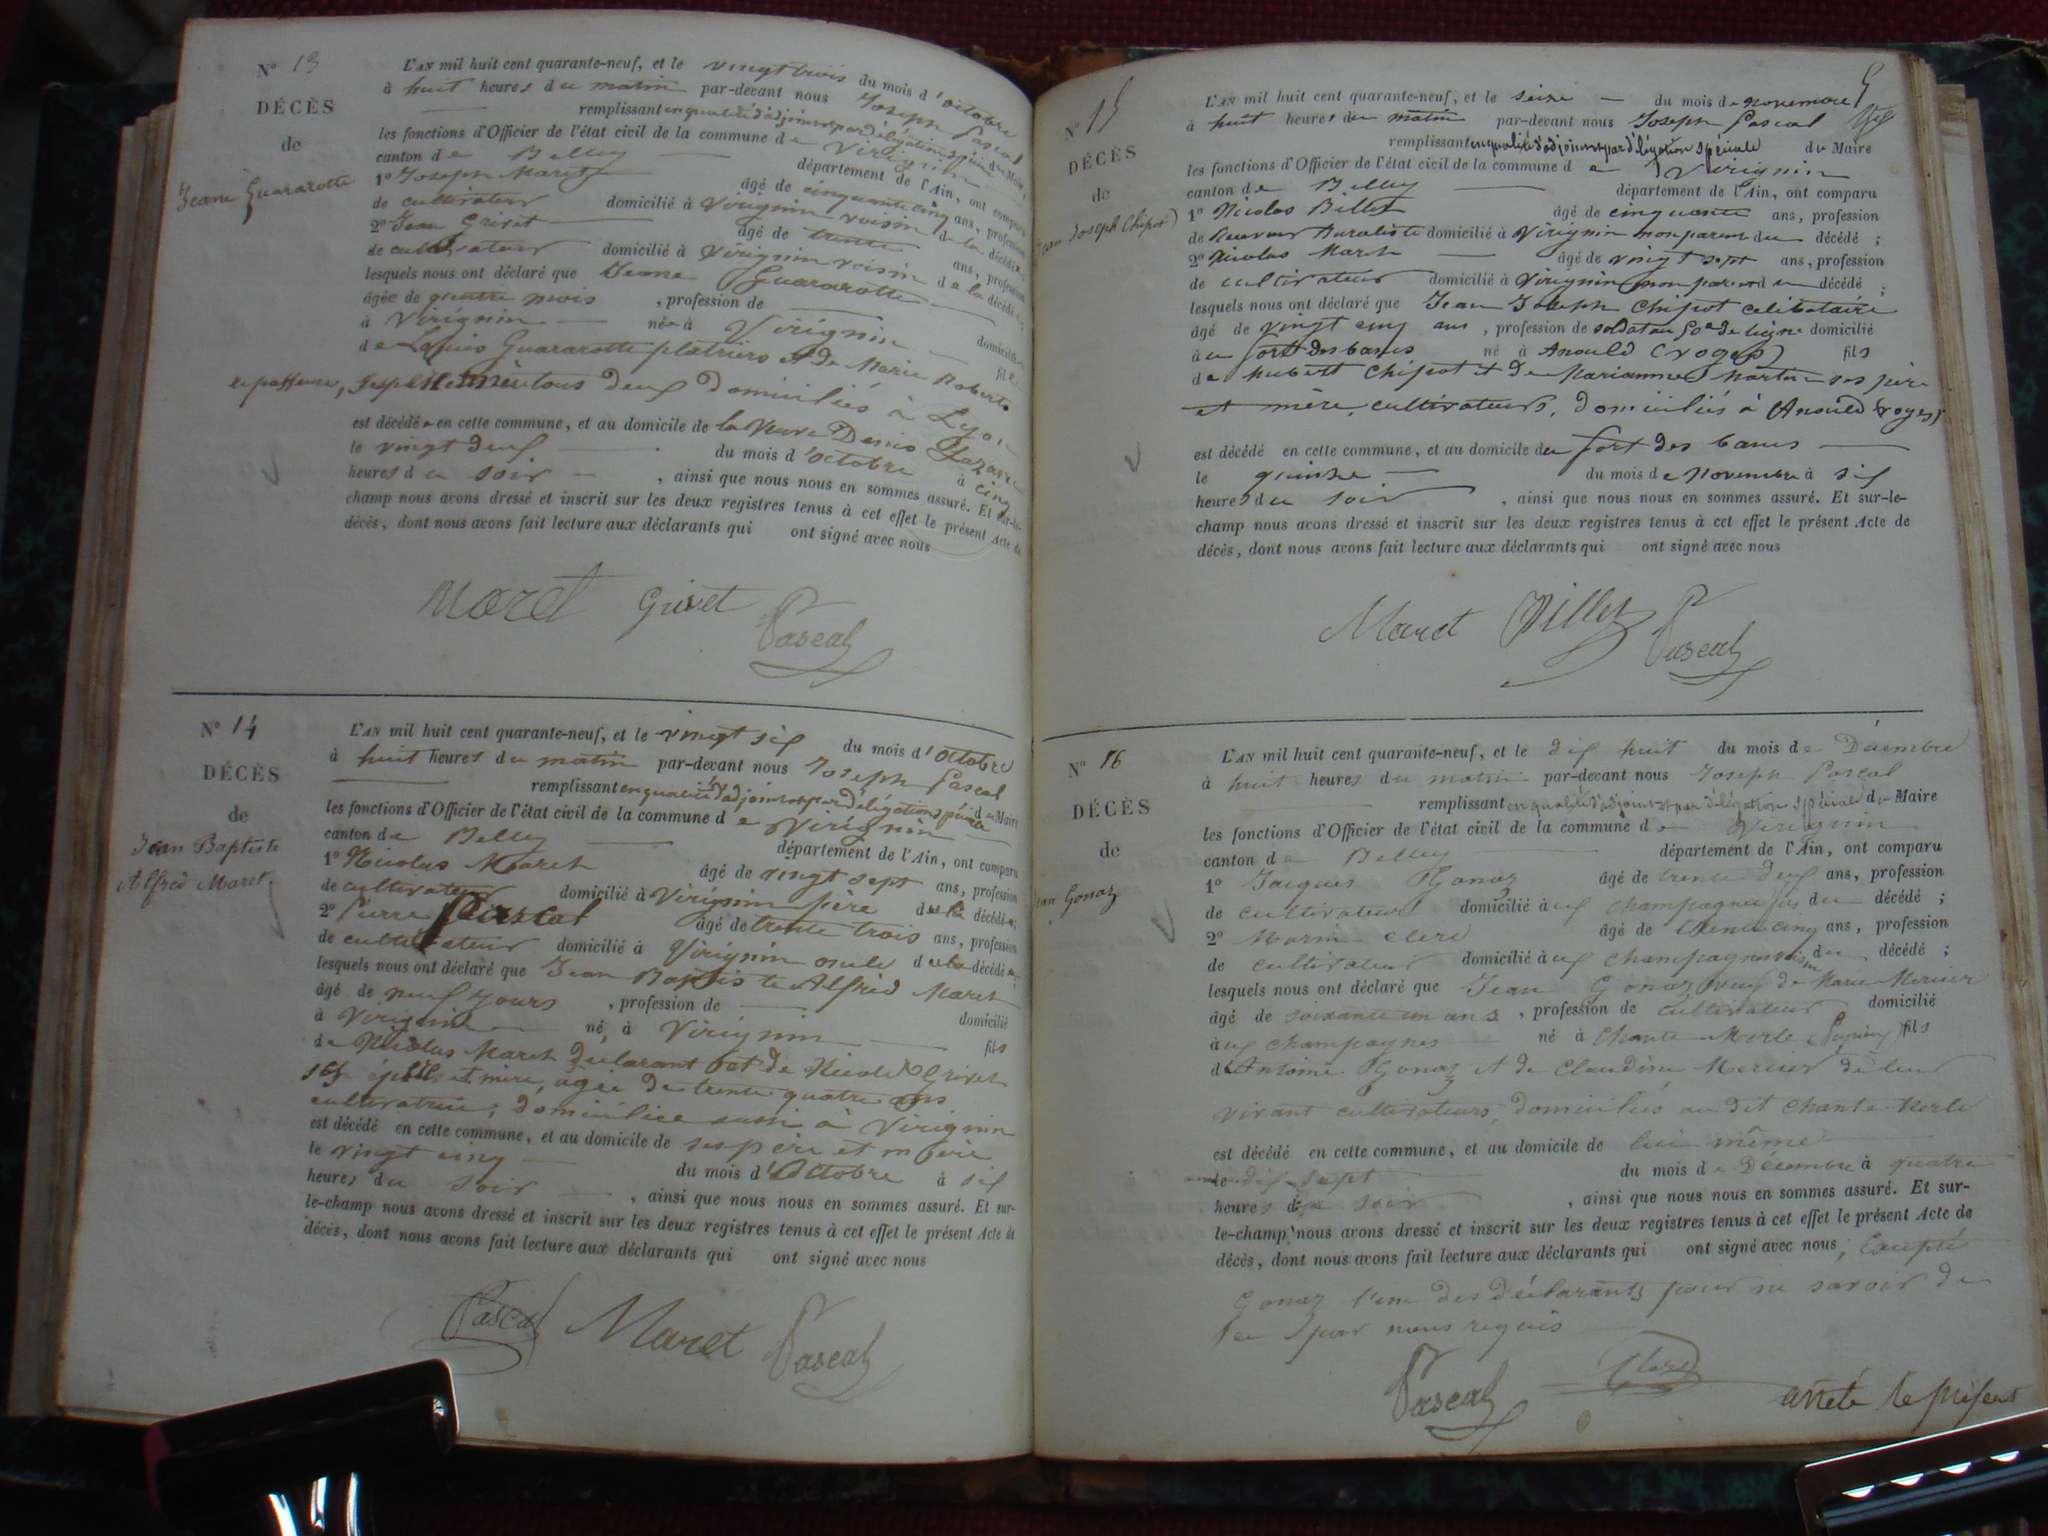 N° 13
DÉCÈS
de
Jeane Guararotte
L'AN mil huit cent quarante-neuf, et le vingt trois du mois d'octobre
à huit heures du matin par-devant nous Joseph Pascal
remplissant en qualité d'adjoint et par délégation spéciale du Maire,
les fonctions d'Officier de l'état civil de la commune de Virignin
canton de Belley département de l'Ain, ont comparu
1° Joseph Maret âgé de cinquante cinq ans, profession
de cultivateur domicilié à Virignin voisin de la décédée
2° Jean Grivet âgé de trente ans, profession
de cultivateur domicilié à Virignin voisin de la décédée
lesquels nous ont déclaré que Jeane Guararotte
âgée de quatre mois , profession de domicilié
à Virignin née à Virignin fille
de Louis Guararotte platriers et de Marie Roberts
repasseuse, ses père et mère tous deux domiciliés à Lyon
est décédée en cette commune, et au domicile de la Veuve Denis Lazare
le vingt deux du mois d'octobre à cinq
heures du soir , ainsi que nous nous en sommes assuré. Et sur-le-
champ nous avons dressé et inscrit sur les deux registres tenus à cet effet le présent Acte de
décès, dont nous avons fait lecture aux déclarants qui ont signé avec nous
Maret Grivet Pascal
N° 14
DÉCÈS
de
Jean Baptiste
Alfred Maret
L'AN mil huit cent quarante-neuf, et le vingt six du mois d'octobre
à huit heures du matin par-devant nous Joseph Pascal
remplissant en qualité d'adjoint et par délégation spéciale du Maire
les fonctions d'Officier de l'état civil de la commune de Virignin
canton de Belley département de l'Ain, ont comparu
1° Nicolas Maret âgé de vingt sept ans, profession
de cultivateur domicilié à Virignin père du décédé
2° Pierre Pascal âgé de trente trois ans, profession
de cultivateur domicilié à Virignin oncle du décédé
lesquels nous ont déclaré que Jean Baptiste Alfred Maret
âgé de neuf jours , profession de domicilié
à Virignin né à Virignin fils
de Nicolas Maret déclarant et de Nicole Grivet
ses père et mère, agée de trente quatre ans
cultivatrice, domiciliée aussi à Virignin
est décédé en cette commune, et au domicile de ses père et mère
le vingt cinq du mois d'Octobre à six
heures du soir , ainsi que nous nous en sommes assuré. Et sur-
le-champ nous avons dressé et inscrit sur les deux registres tenus à cet effet le présent Acte de
décès, dont nous avons fait lecture aux déclarants qui ont signé avec nous
Pascal Maret Pascal
N° 15
DÉCÈS
de
Jean Joseph Chipot
L'AN mil huit cent quarante-neuf, et le seize du mois de novembre
à huit heures du matin par-devant nous Joseph Pascal
remplissant en qualité d'adjoint et par délégation spéciale du Maire
les fonctions d'Officier de l'état civil de la commune de Virignin
canton de Belley département de l'Ain, ont comparu
1° Nicolas Billet âgé de cinquante ans, profession
de Receveur Buraliste domicilié à Virignin non parent du décédé ;
2° Nicolas Maret âgé de vingt sept ans, profession
de cultivateur domicilié à Virignin non parent du décédé ;
lesquels nous ont déclaré que Jean Joseph Chipot célibataire
âgé de vingt cinq ans , profession de soldat au de ligne domicilié
au fort des bancs né à Anould (Voges) fils
de hubert Chipot et de Marianne Martin ses père
et mère, cultivateurs, domiciliés à Anould (Voges)
est décédé en cette commune, et au domicile du fort des bancs
le quinze du mois de Novembre à six
heures du soir , ainsi que nous nous en sommes assuré. Et sur-le-
champ nous avons dressé et inscrit sur les deux registres tenus à cet effet le présent Acte de
décès, dont nous avons fait lecture aux déclarants qui ont signé avec nous
Maret Billet Pascal
N° 16
DÉCÈS
de
Jean Gonaz
L'AN mil huit cent quarante-neuf, et le dix huit du mois de Décembre
à huit heures du matin par-devant nous Joseph Pascal
remplissant en qualité d'adjoint et par délégation spéciale du Maire
les fonctions d'Officier de l'état civil de la commune de Virignin
canton de Belley département de l'Ain, ont comparu
1° Jacques Gonaz âgé de trente deux ans, profession
de cultivateur domicilié à ux champagnes fils du décédé ;
2° Marin Clerc âgé de cinq ans, profession
de cultivateur domicilié à ux champagnes voisin du décédé ;
lesquels nous ont déclaré que Jean Gonaz veuf de Marie Mercier
âgé de soixante un ans , profession de cultivateur domicilié
à ux champagnes né à Chante Merle fils
d'Antoine Gonaz et de Claudine Mercier de leur
vivant cultivateurs, domiciliés au dit Chante-Merle
est décédé en cette commune, et au domicile de lui même
le dix sept du mois de Décembre à quatre
heures du soir , ainsi que nous nous en sommes assuré. Et sur-
le-champ nous avons dressé et inscrit sur les deux registres tenus à cet effet le présent Acte de
décès, dont nous avons fait lecture aux déclarants qui ont signé avec nous, Excepté
Gonaz l'un des déclarants pour ne savoir de
ce par nous requis
Pascal Clerc
arrêté le présent